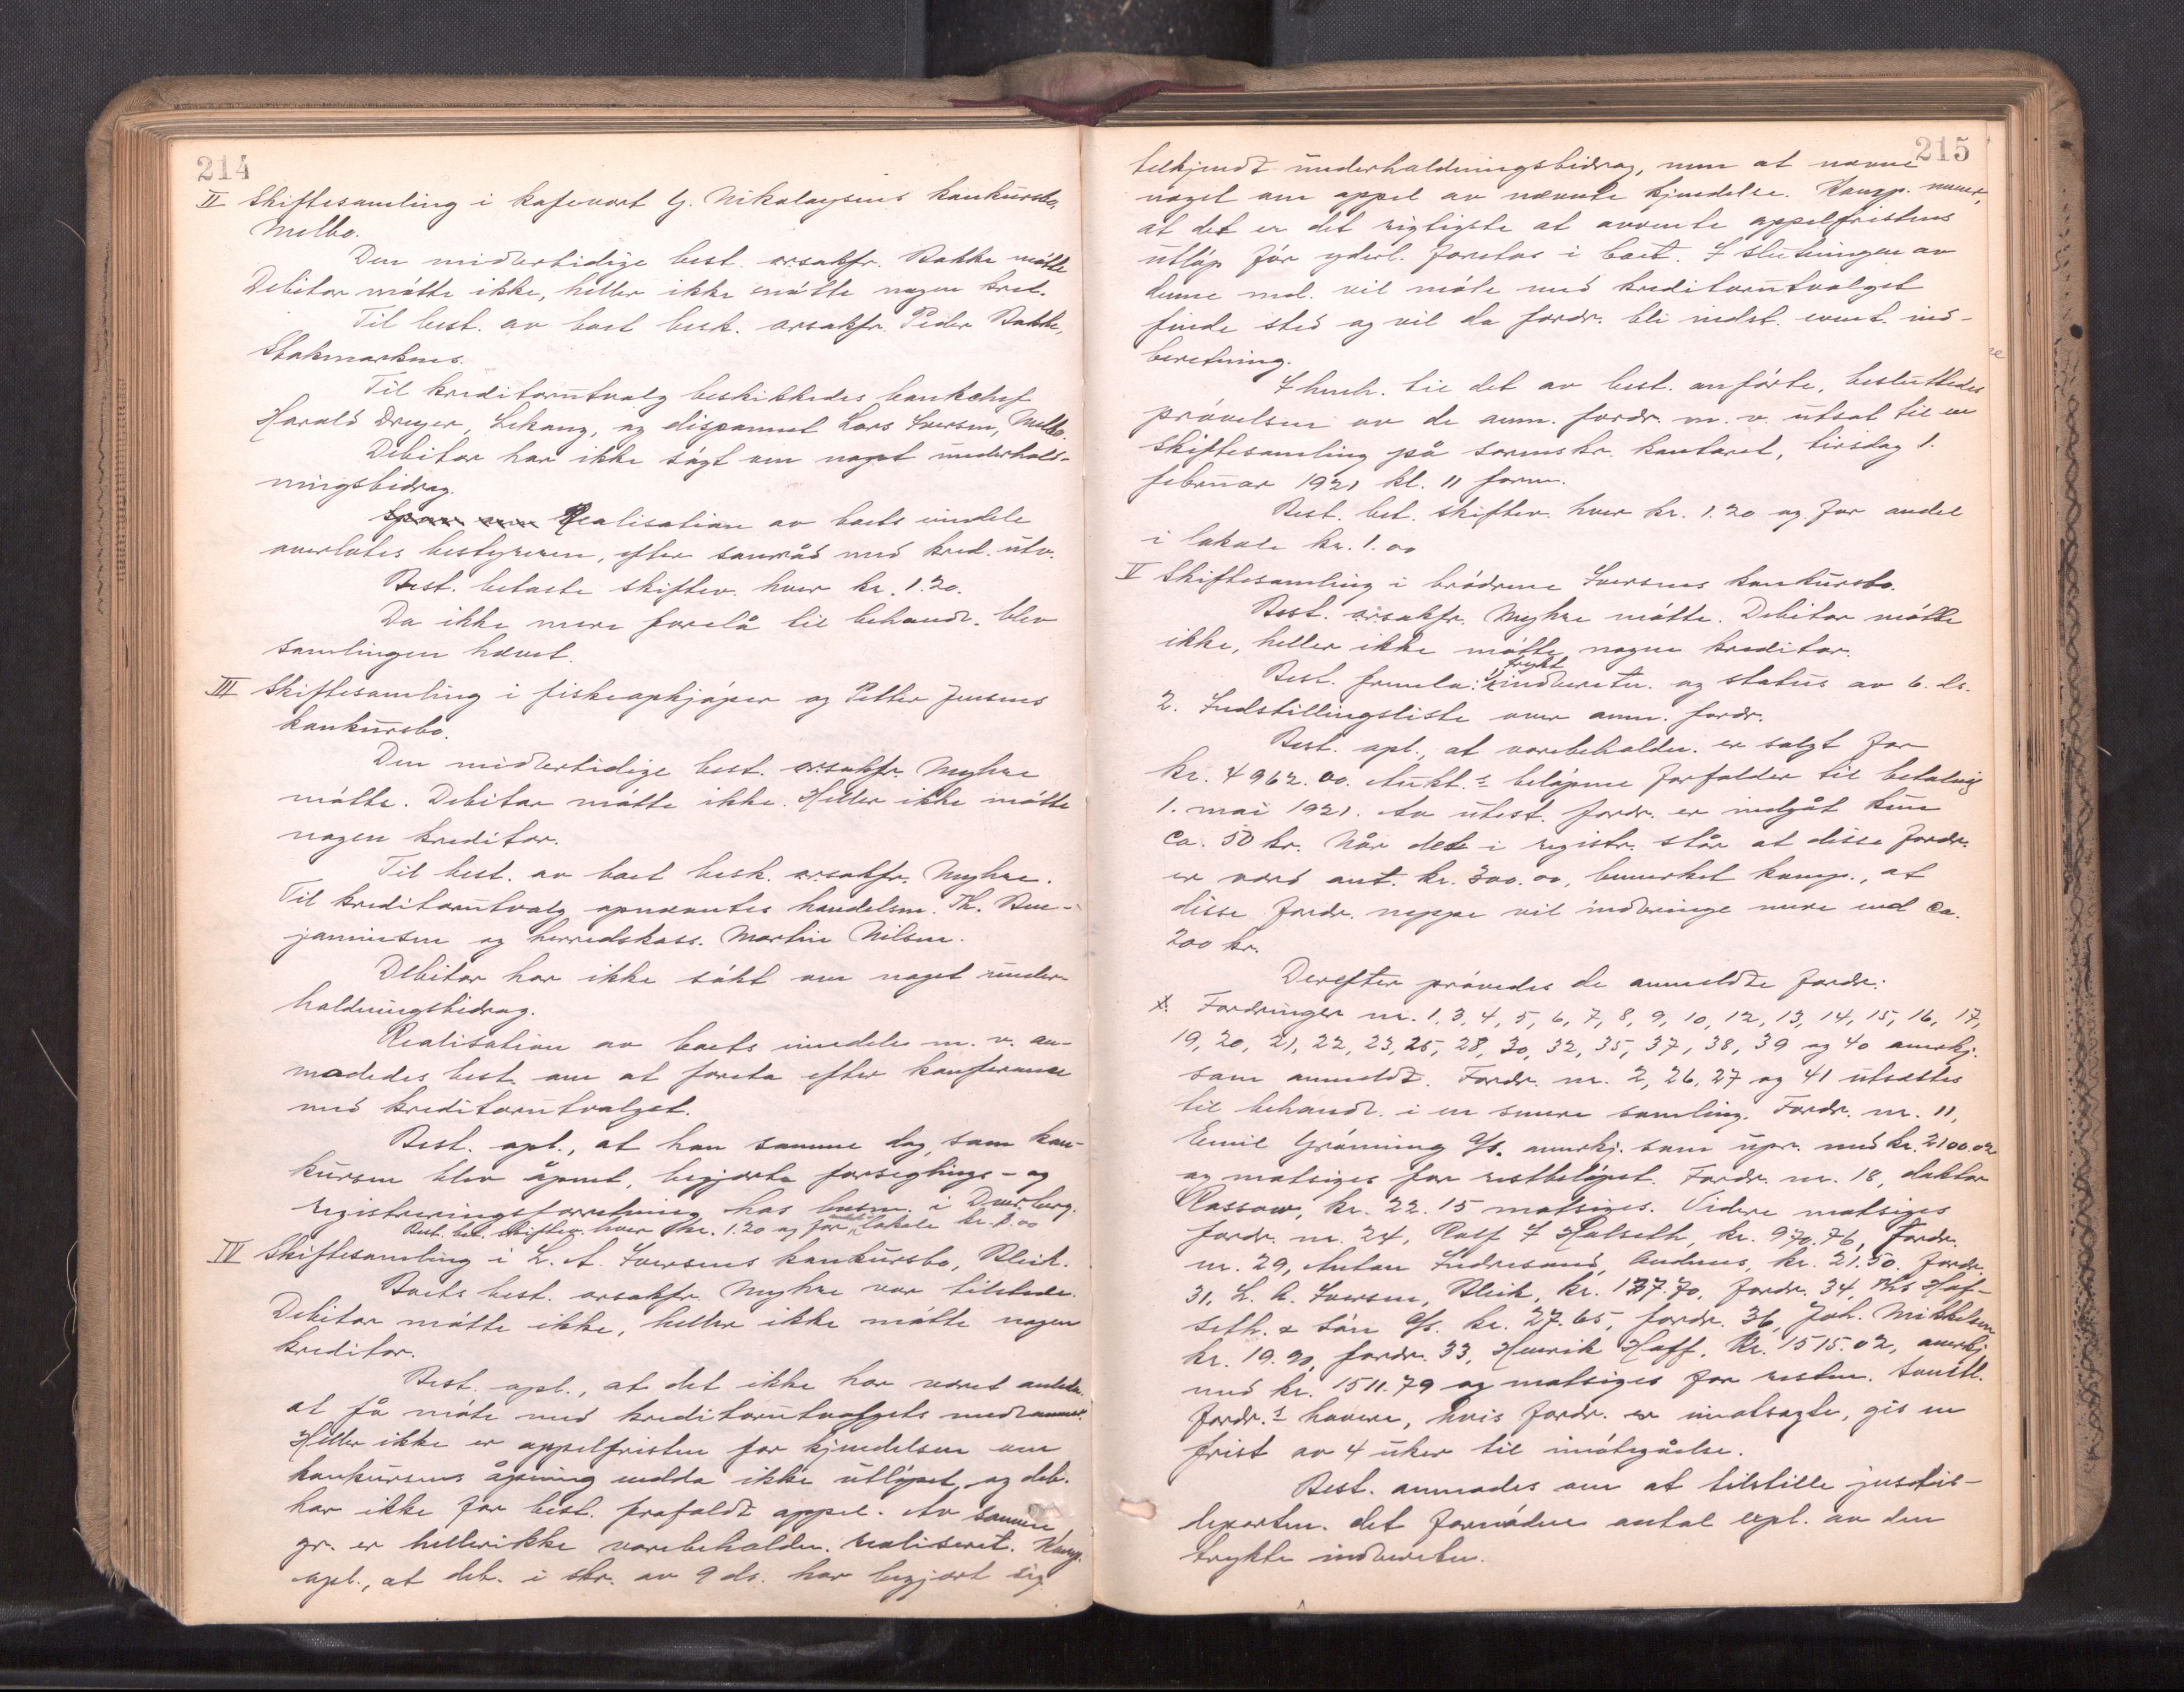 214
II Skiftesamling i kafevert G. Nikolaysens konkursbo,
Melbo.
Den midlertidige best. o.r.sakfr. Bakke møtte
Debitor møtte ikke, heller ikke møtte nogen kred.
Til best. av boet besk. o.r.sakfr. Peder Bakke,
Stokmarknes.
Til kreditorutvalg beskikkedes bankchef
Harald Dreyer, Lekang, og disponent Lars Iversen, Melbo.
Debitor har ikke søgt om noget underhold-
ningsbidrag.
Realisation av boets eiendele
overlates bestyreren, efter samråd med kred. utv.
Best. betalte skiftev. hver kr. 1.20.
Da ikke mere forelå til behandl. blev
samlingen hævet.
III Skiftesamling i fiskeopkjøper og Petter Jensens
konkursbo.
Den midlertidige best. o.r.sakfr. Myhre
møtte. Debitor møtte ikke. Heller ikke møtte
nogen kreditor.
Til best. av boet besk. o.r.sakfr. Myhre.
Til kreditorutvalg opnævntes handelsm. Th. Ben-
jaminsen og herredskass. Martin Nilsen.
Debitor har ikke søkt om noget under-
holdningsbidrag.
Realisation av boets eiendele m. v. an-
modedes best. om at foreta efter konferanse
med kreditorutvalget.
Best. opl., at han samme dag, som kon-
kursen blev åpnet, begjærte forseglings- og
registreringsforretning hos lensm. i Dverberg.
Best. bet. skiftev. hver kr. 1.20 og for andel i lokale kr. 1.00
IV Skiftesamling i L. A. Iversens konkursbo, Bleik.
Boets best. o.r.sakfr. Myhre var tilstede.
Debitor møtte ikke, heller ikke møtte nogen
kreditor.
Best. opl., at det ikke har været anledn.
at få møte med kreditorutvalgets medlemmer.
Heller ikke er appelfristen for kjendelsen om
konkursens åpning endda ikke utløpet, og deb.
har ikke for best. frafaldt appel. Av samme
gr. er heller ikke varebeholdn. realiseret. Komp.
opl., at deb. i skr. av 9 ds. har begjært sig
215
tilkjendt underholdningsbidrag, men at nævne
noget om appel av nævnte kjendelse. Komp. mener,
at det er det rigtigste at avvente appelfristens
utløp før yderl. foretas i boet. I slutningen av
denne md. vil møte med kreditorutvalget
finde sted og vil da fordr. bli indst. event. ind-
beretning.
I henh. til det av best. anførte, besluttedes
prøvelsen av de anm. fordr. m. v. utsat til en
skiftesamling på sorenskr. kontoret, tirsdag 1.
februar 1921 kl. 11 form.
Best. bet. skiftev. hver kr. 1.20 og for andel
i lokale kr. 1.00
V Skiftesamling i brødrene Iversens konkursbo.
Best. o.r.sakfr. Myhre møtte. Debitor møtte
ikke, heller ikke møtte nogen kreditor.
Best. fremla: 1, trykt indberetn. og status av 6. ds.
2. Indstillingsliste over anm. fordr.
Best. opl., at varebeholdn. er solgt for
kr. 4962.00. Aukt.s beløpene forfalder til betaling
1. mai 1921. Av utest. fordr. er indgåt kun
ca. 50 kr. Når det i registr. står at disse fordr.
er værd ant. kr. 300.00, bemerket komp., at
disse fordr. neppe vil indbringe mere end ca.
200 kr.
Derefter prøvedes de anmeldte fordr:
x. Fordringer nr. 1, 3, 4, 5, 6, 7, 8, 9, 10, 12, 13, 14, 15, 16, 17,
19, 20, 21, 22, 23, 25, 28, 30, 32, 35, 37, 38, 39 og 40 anerkj.
som anmeldt. Fordr. nr. 2, 26, 27 og 41 utsættes
til behandl. i en senere samling. Fordr. nr. 11,
Emil Grønning A/S. anerkj. som upr. med kr. 2100.02
og motsiges for restbeløpet. Fordr. nr. 18, doktor
Rassow, kr. 22.15 motsiges. Videre motsiges
fordr. nr. 24, Rolf I Holseth, kr. 970.76, fordr.
nr. 29, Anton Indresand, Andenes, kr. 21.50. fordr.
31, L. A. Iversen, Bleik, kr. 177.70, fordr. 34, Ths Hof-
seth & Søn A/S. kr. 27.65, fordr. 36, Joh. Mikkelsen
kr. 19.90, fordr. 33, Henrik Hoff, kr. 1515.02, anerkj
med kr. 1511.79 og motsiges for resten. Samtl.
fordr.s havere, hvis fordr. er imotsagte, gis en
frist av 4 uker til imøtegåelse.
Best. anmodes om at tilstille justis-
departem. det fornødne antal expl. av den
trykte indberetn.